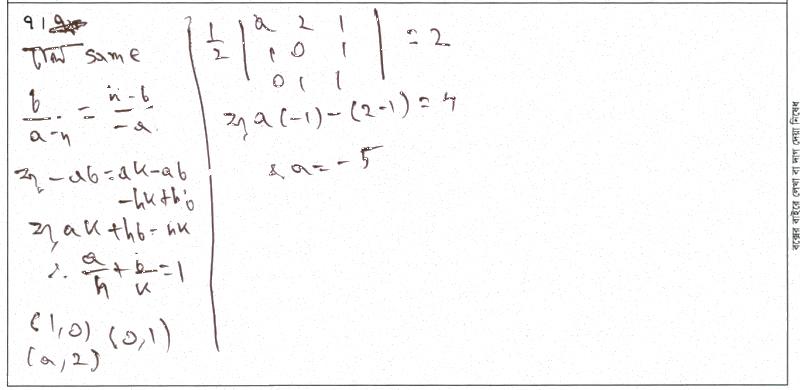 ৭।
ঢাল same
b/(a-h) = (k-b)/(-a)
বা, -ab = ak-ab
-hk+hb
বা, ak+hb=hk
∴ a/h + b/k = 1
(1,0) (0,1)
(a,2)
1/2 | a 2 1 | = 2
1 0 1
0 1 1
বা, a(-1) - (2-1) = 4
∴ a = -5
বক্সের বাইরে লেখা বা দাগ দেয়া নিষেধ